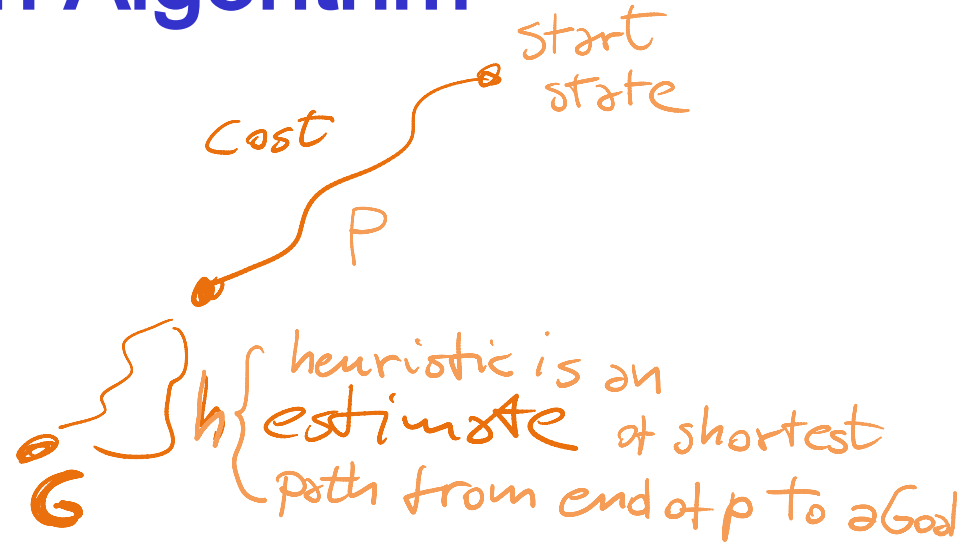 Algorithm
start
state
cost
P
heuristic is an
h estimate of shortest
path from end of p to a Goal
G